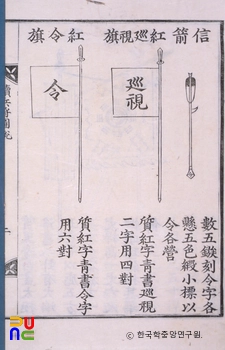 信箭
數五鏃刻令字各
懸五色緞小標以
令各營
紅巡視旗
巡視
質紅字青書巡視
二字用四對
紅令旗
令
質紅字青書令字
用六對
© 한국학중앙연구원